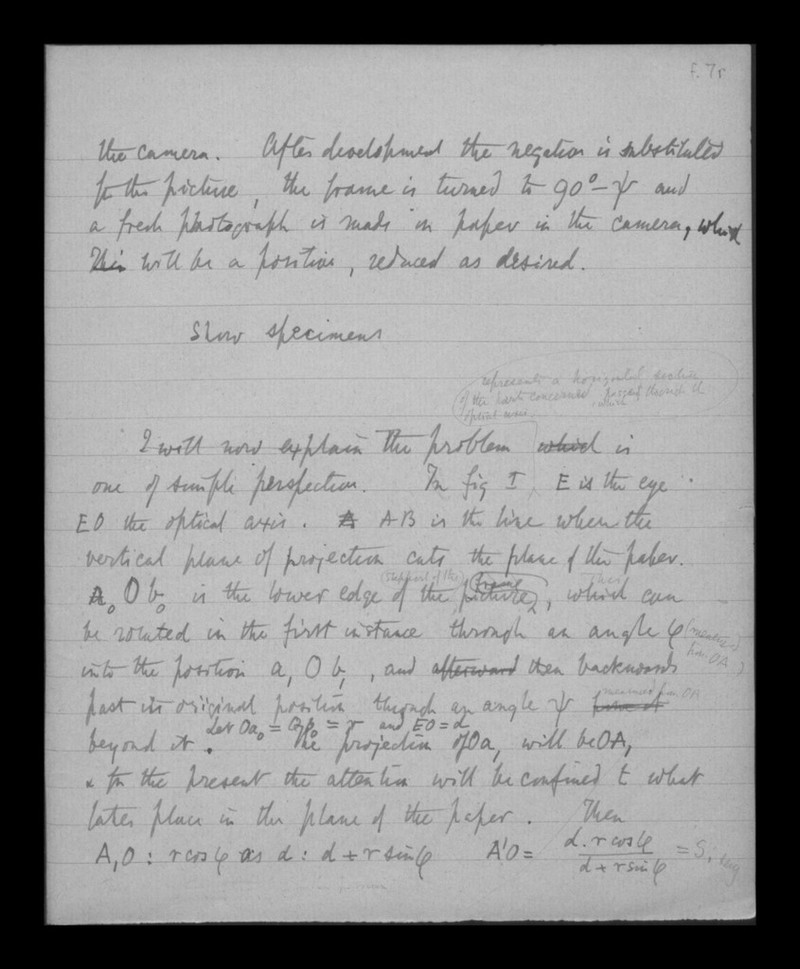 f. 7r
the camera. After development the negative is substituted
for the picture, the frame is turned to 90° – ψ and
a fresh photograph is made on paper in the camera, which
This will be a positive, reduced as desired.
Show specimens
represents a horizontal section
of the parts concerned, which passes through the
optical axis.
I will now explain the problem which is
one of simple perspective. In fig I E is the eye
EO the optical axis. A AB is the line where the
vertical plane of projection cuts the plane of the paper.
(support of the frame
a₀ O b₀ is the lower edge of the picture, which can
be rotated in the first instance through an angle φ (measured from OA)
into the position a, O b, , and afterward then backwards
measured from OA
past its original position through an angle ψ
Let Oa₀ = Ob₀ = r and EO = d
beyond it. The projection of Oa, will be OA,
x for the present the attention will be confined to what
takes place in the plane of the paper. Then
A,O : r cos φ as d : d + r sin φ A'O = d. r cos φ / d + r sin φ = S,